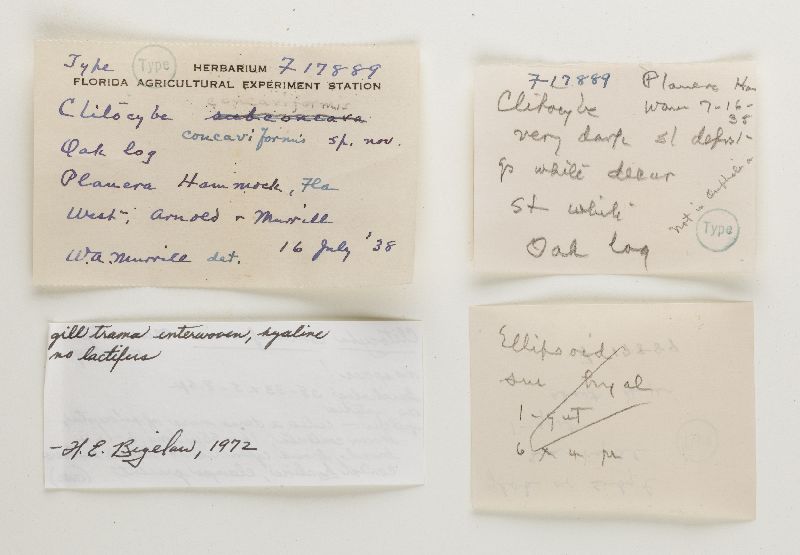 Type Type HERBARIUM F 17889
FLORIDA AGRICULTURAL EXPERIMENT STATION
Clitocybe subconcava
concaviformis sp. nov.
Oak log
Planera Hammock, Fla
West, Arnold & Murrill
W.A. Murrill det. 16 July '38
F 17889 Planera Ham
Clitocybe Warm 7-16-
38
very dark sl depr
gs white decur
st white
not in
Type
Oak log
gill trama interwoven, hyaline
no lactifers
-H. E. Bigelow, 1972
Ellipsoid
sm hyal
1-gut
6 x 4 µ